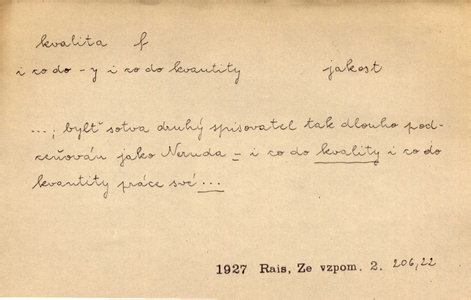 kvalita f
i co do -y i co do kvantity jakost
...; bylť sotva druhý spisovatel tak dlouho pod-
ceňován jako Neruda = i co do kvality i co do
kvantity práce své ...
1927 Rais, Ze vzpom. 2. 206,22